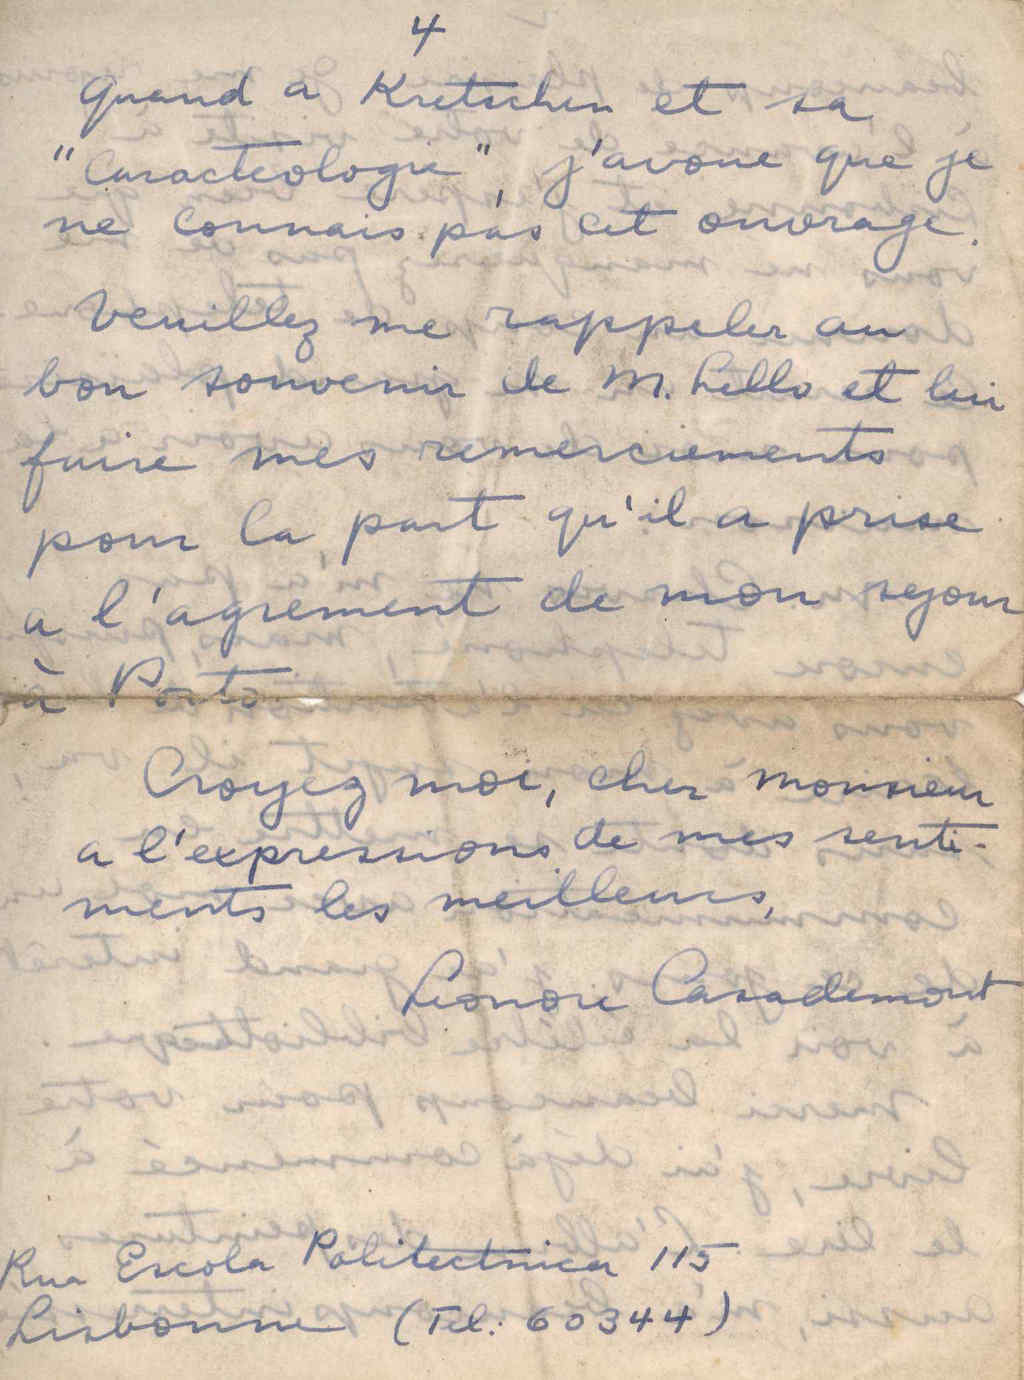 4
Quand a Kretschen et sa
"Caracteologie", j'avoue que je
ne connais pas cet ouvrage.
Veuillez me rappeler au
bon souvenir de M. Lello et lui
faire mes remerciements
pour la part qu'il a prise
a l'agrement de mon sejour
à Porto.
Croyez moi, cher monsieur
a l'expressions de mes senti-
ments les meilleurs,
Leonore Casademont
Rua Escola Politectnica 115
Lisbonne (Tel: 60344)